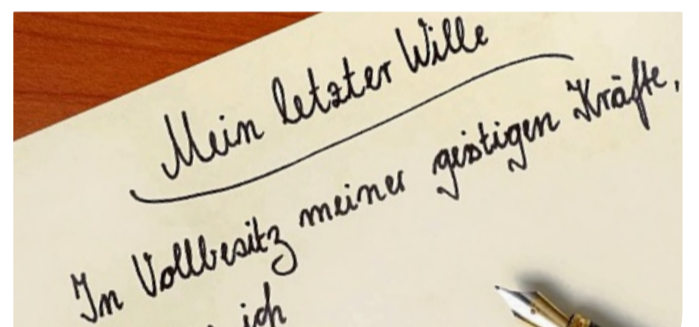 Mein letzter Wille
In Vollbesitz meiner geistigen Kräfte,
ich